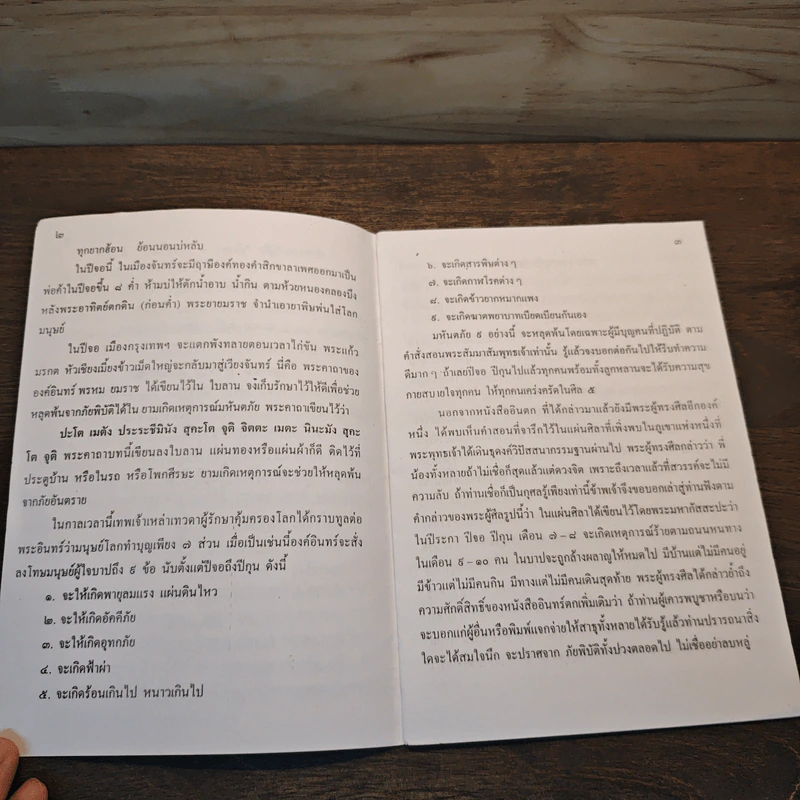 ๒
ทุกยากฮ้อน ย้อนนอนบ่หลับ
ในปีจอนี้ ในเมืองจันทร์จะมีฤาษีองค์ทองคำสิกขาลาเพศออกมาเป็น
พ่อค้าในปีจอขึ้น ๘ ค่ำ ห้ามบ่ให้ตักน้ำอาบ น้ำกิน ตามห้วยหนองคลองบึง
หลังพระอาทิตย์ตกดิน (ก่อนค่ำ) พระยายมราช จำนำเอายาพิษพ่นใส่โลก
มนุษย์
ในปีจอ เมืองกรุงเทพฯ จะแตกพังทลายตอนเวลาไก่ขัน พระแก้ว
มรกต หัวเชียงเมี่ยงข้าวเม็ดใหญ่จะกลับมาสู่เวียงจันทร์ นี่คือ พระคาถาของ
องค์อินทร์ พรหม ยมราช ได้เขียนไว้ใน ใบลาน จงเก็บรักษาไว้ให้ดีเพื่อช่วย
หลุดพ้นจากภัยพิบัติได้ใน ยามเกิดเหตุการณ์มหันตภัย พระคาถาเขียนไว้ว่า
ปะโต เมตัง ประระชีมินัง สุคะโต จุติ จิตตะ เมตะ นินะมัง สุคะ
โต จุติ พระคาถาบทนี้เขียนลงใบลาน แผ่นทองหรือแผ่นผ้าก็ดี ติดไว้ที่
ประตูบ้าน หรือในรถ หรือโพกศีรษะ ยามเกิดเหตุการณ์จะช่วยให้หลุดพ้น
จากภัยอันตราย
ในกาลเวลานี้เทพเจ้าเหล่าเทวดาผู้รักษาคุ้มครองโลกได้กราบทูลต่อ
พระอินทร์ว่ามนุษย์โลกทำบุญเพียง ๗ ส่วน เมื่อเป็นเช่นนี้องค์อินทร์จะสั่ง
ลงโทษมนุษย์ผู้ใจบาปถึง ๙ ข้อ นับตั้งแต่ปีจอถึงปีกุน ดังนี้
๑. จะให้เกิดพายุลมแรง แผ่นดินไหว
๒. จะให้เกิดอัคคีภัย
๓. จะให้เกิดอุทกภัย
๔. จะเกิดฟ้าผ่า
๕. จะเกิดร้อนเกินไป หนาวเกินไป
๓
๖. จะเกิดสารพิษต่าง ๆ
๗. จะเกิดกาฬโรคต่าง ๆ
๘. จะเกิดข้าวยากหมากแพง
๙. จะเกิดฆาตพยาบาทเบียดเบียนกันเอง
มหันตภัย ๙ อย่างนี้ จะหลุดพ้นโดยเฉพาะผู้มีบุญคนที่ปฏิบัติ ตาม
คำสั่งสอนพระสัมมาสัมพุทธเจ้าเท่านั้น รู้แล้วจงบอกต่อกันไปให้รีบทำความ
ดีมาก ๆ ถ้าเลยปีจอ ปีกุนไปแล้วทุกคนพร้อมทั้งลูกหลานจะได้รับความสุข
กายสบายใจทุกคน ให้ทุกคนเคร่งครัดในศีล ๕
นอกจากหนังสืออินตก ที่ได้กล่าวมาแล้วยังมีพระผู้ทรงศีลอีกองค์
หนึ่ง ได้พบเห็นคำสอนที่จารึกไว้ในแผ่นศิลาที่เพิ่งพบในภูเขาแห่งหนึ่งที่
พระพุทธเจ้าได้เดินธุดงค์วิปัสสนากรรมฐานผ่านไป พระผู้ทรงศีลกล่าวว่า พี่
น้องทั้งหลายถ้าไม่เชื่อก็สุดแล้วแต่ดวงจิต เพราะถึงเวลาแล้วที่สวรรค์จะไม่มี
ความลับ ถ้าท่านเชื่อก็เป็นกุศลรู้เพียงเท่านี้ข้าพเจ้าจึงขอบอกเล่าสู่ท่านฟังตาม
คำกล่าวของพระผู้ศีลรูปนี้ว่า ในแผ่นศิลาได้เขียนไว้โดยพระมหากัสสะปะว่า
ในปีระกา ปีจอ ปีกุน เดือน ๗–๘ จะเกิดเหตุการณ์ร้ายตามถนนหนทาง
ในเดือน ๙–๑๐ คน ใจบาปจะถูกล้างผลาญให้หมดไป มีบ้านแต่ไม่มีคนอยู่
มีข้าวแต่ไม่มีคนกิน มีทางแต่ไม่มีคนเดินสุดท้าย พระผู้ทรงศีลได้กล่าวย้ำถึง
ความศักดิ์สิทธิ์ของหนังสืออินทร์ตกเพิ่มเติมว่า ถ้าท่านผู้เคารพบูชาหรือบนว่า
จะบอกแก่ผู้อื่นหรือพิมพ์แจกจ่ายให้สาธุทั้งหลายได้รับรู้แล้วท่านปรารถนาสิ่ง
ใดจะได้สมใจนึก จะปราศจาก ภัยพิบัติทั้งปวงตลอดไป ไม่เชื่ออย่าลบหลู่